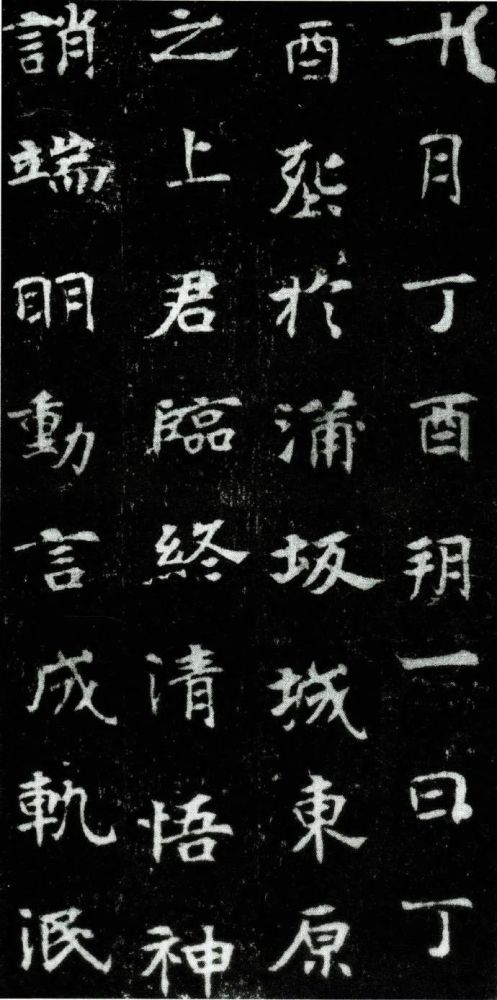 十月丁酉朔一日丁
酉葬扵蒲坂城東原
之上君臨終清悟神
誚端眀動言成軌泯